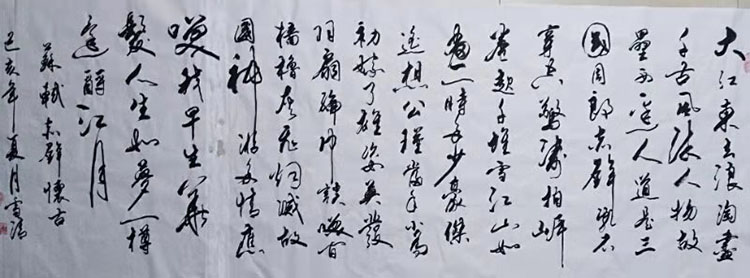 大江東去浪淘盡
千古風流人物故
壘西邊人道是三
國周郎赤壁亂石
穿空驚濤拍岸
卷起千堆雪江山如
畫一時多少豪傑
遙想公瑾當年小喬
初嫁了雄姿英發
羽扇綸巾談笑間
檣櫓灰飛烟滅故
國神游多情應
笑我早生華
髮人生如夢一樽
還酹江月
蘇軾赤壁懷古
己亥年夏月